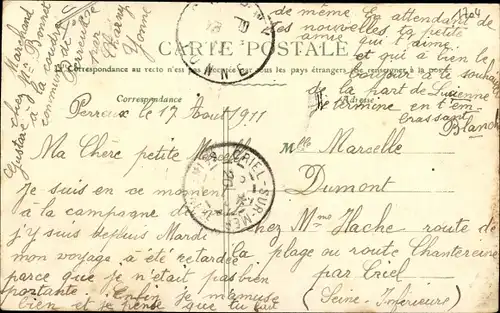 CARTE POSTALE
La Correspondance au recto n'est pas acceptée par tous les pays étrangers
Correspondance
Perreux le 17 Aout 1911
Ma Chère petite Marcelle
Je suis en ce moment
à la campagne
j'y suis depuis Mardi
mon voyage a été retardée
parce que je n'était pas bien
portante. Enfin je m'amuse
bien et je pense que tu fait
de même. En attendant de
tes nouvelles, ta petite
amie qui t'aime
et qui a bien le
bonjour à te souhaiter
de la part de Lucienne
Je termine en t'em
brassant
Blanche
Gustave chez Marchand
à Mr Bouret
la coudre
commune de
Perreux
par
Charny
Yonne
Adresse
Mlle Marcelle
Dumont
chez Mme Hache route de
la plage ou route Chantereine
par Criel
(Seine-Inférieure)
CRIEL-SUR-MER
YONNE